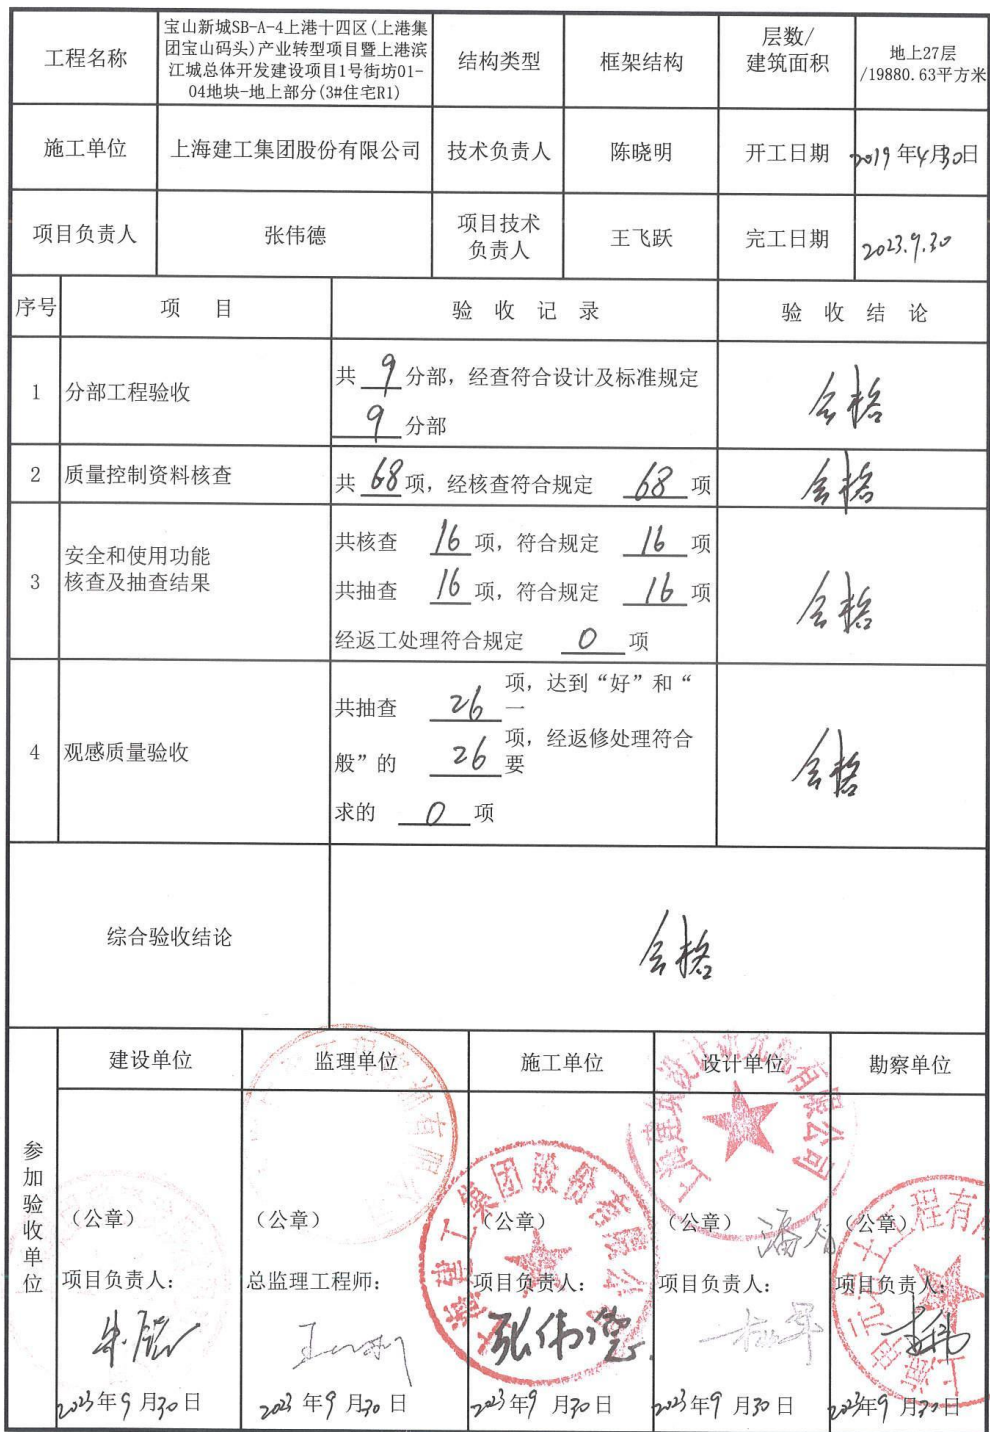 工程名称
宝山新城SB-A-4上港十四区(上港集
团宝山码头)产业转型项目暨上港滨
江城总体开发建设项目1号街坊01-
04地块-地上部分(3#住宅R1)
结构类型
框架结构
层数/
建筑面积
地上27层
/19880.63平方米
施工单位
上海建工集团股份有限公司
技术负责人
陈晓明
开工日期
2019年4月30日
项目负责人
张伟德
项目技术
负责人
王飞跃
完工日期
2023.9.30
序号
项 目
验 收 记 录
验 收 结 论
1
分部工程验收
共 9 分部，经查符合设计及标准规定
9 分部
合格
2
质量控制资料核查
共 68 项，经核查符合规定 68 项
合格
3
安全和使用功能
核查及抽查结果
共核查 16 项，符合规定 16 项
共抽查 16 项，符合规定 16 项
经返工处理符合规定 0 项
合格
4
观感质量验收
共抽查 26 项，达到“好”和“一
般”的 26 项，经返修处理符合要
求的 0 项
合格
综合验收结论
合格
参加验收单位
建设单位
监理单位
施工单位
设计单位
勘察单位
（公章）
（公章）
（公章）
（公章）
（公章）
项目负责人：
总监理工程师：
项目负责人：
项目负责人：
项目负责人：
张伟德
2023年9月30日
2023年9月30日
2023年9月30日
2023年9月30日
2023年9月30日
上海建工集团股份有限公司